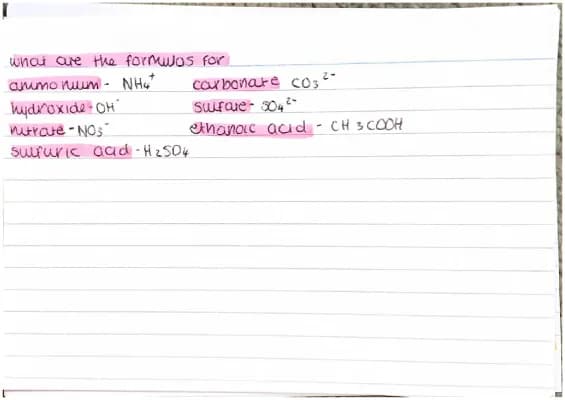 what are the formulas for
ammonium - NH₄⁺ carbonate CO₃²⁻
hydroxide - OH⁻ sulfate - SO₄²⁻
nitrate - NO₃⁻ ethanoic acid - CH3COOH
sulfuric acid - H₂SO₄